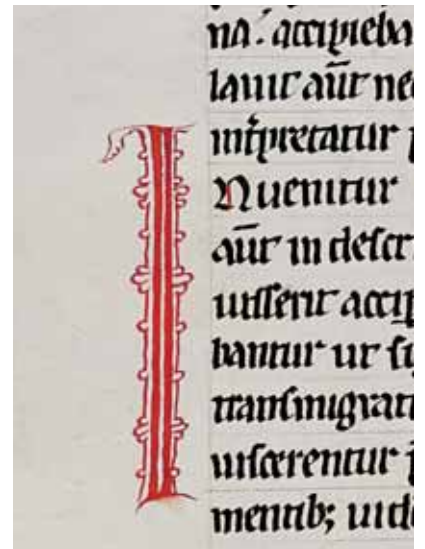 na. accipieba
lauit aūt ne
int̄pretatur
I Nuenitur
aūt in descr
uisserit accip
bantur ut si
transmigrati
uiscerentur
mentib; uid